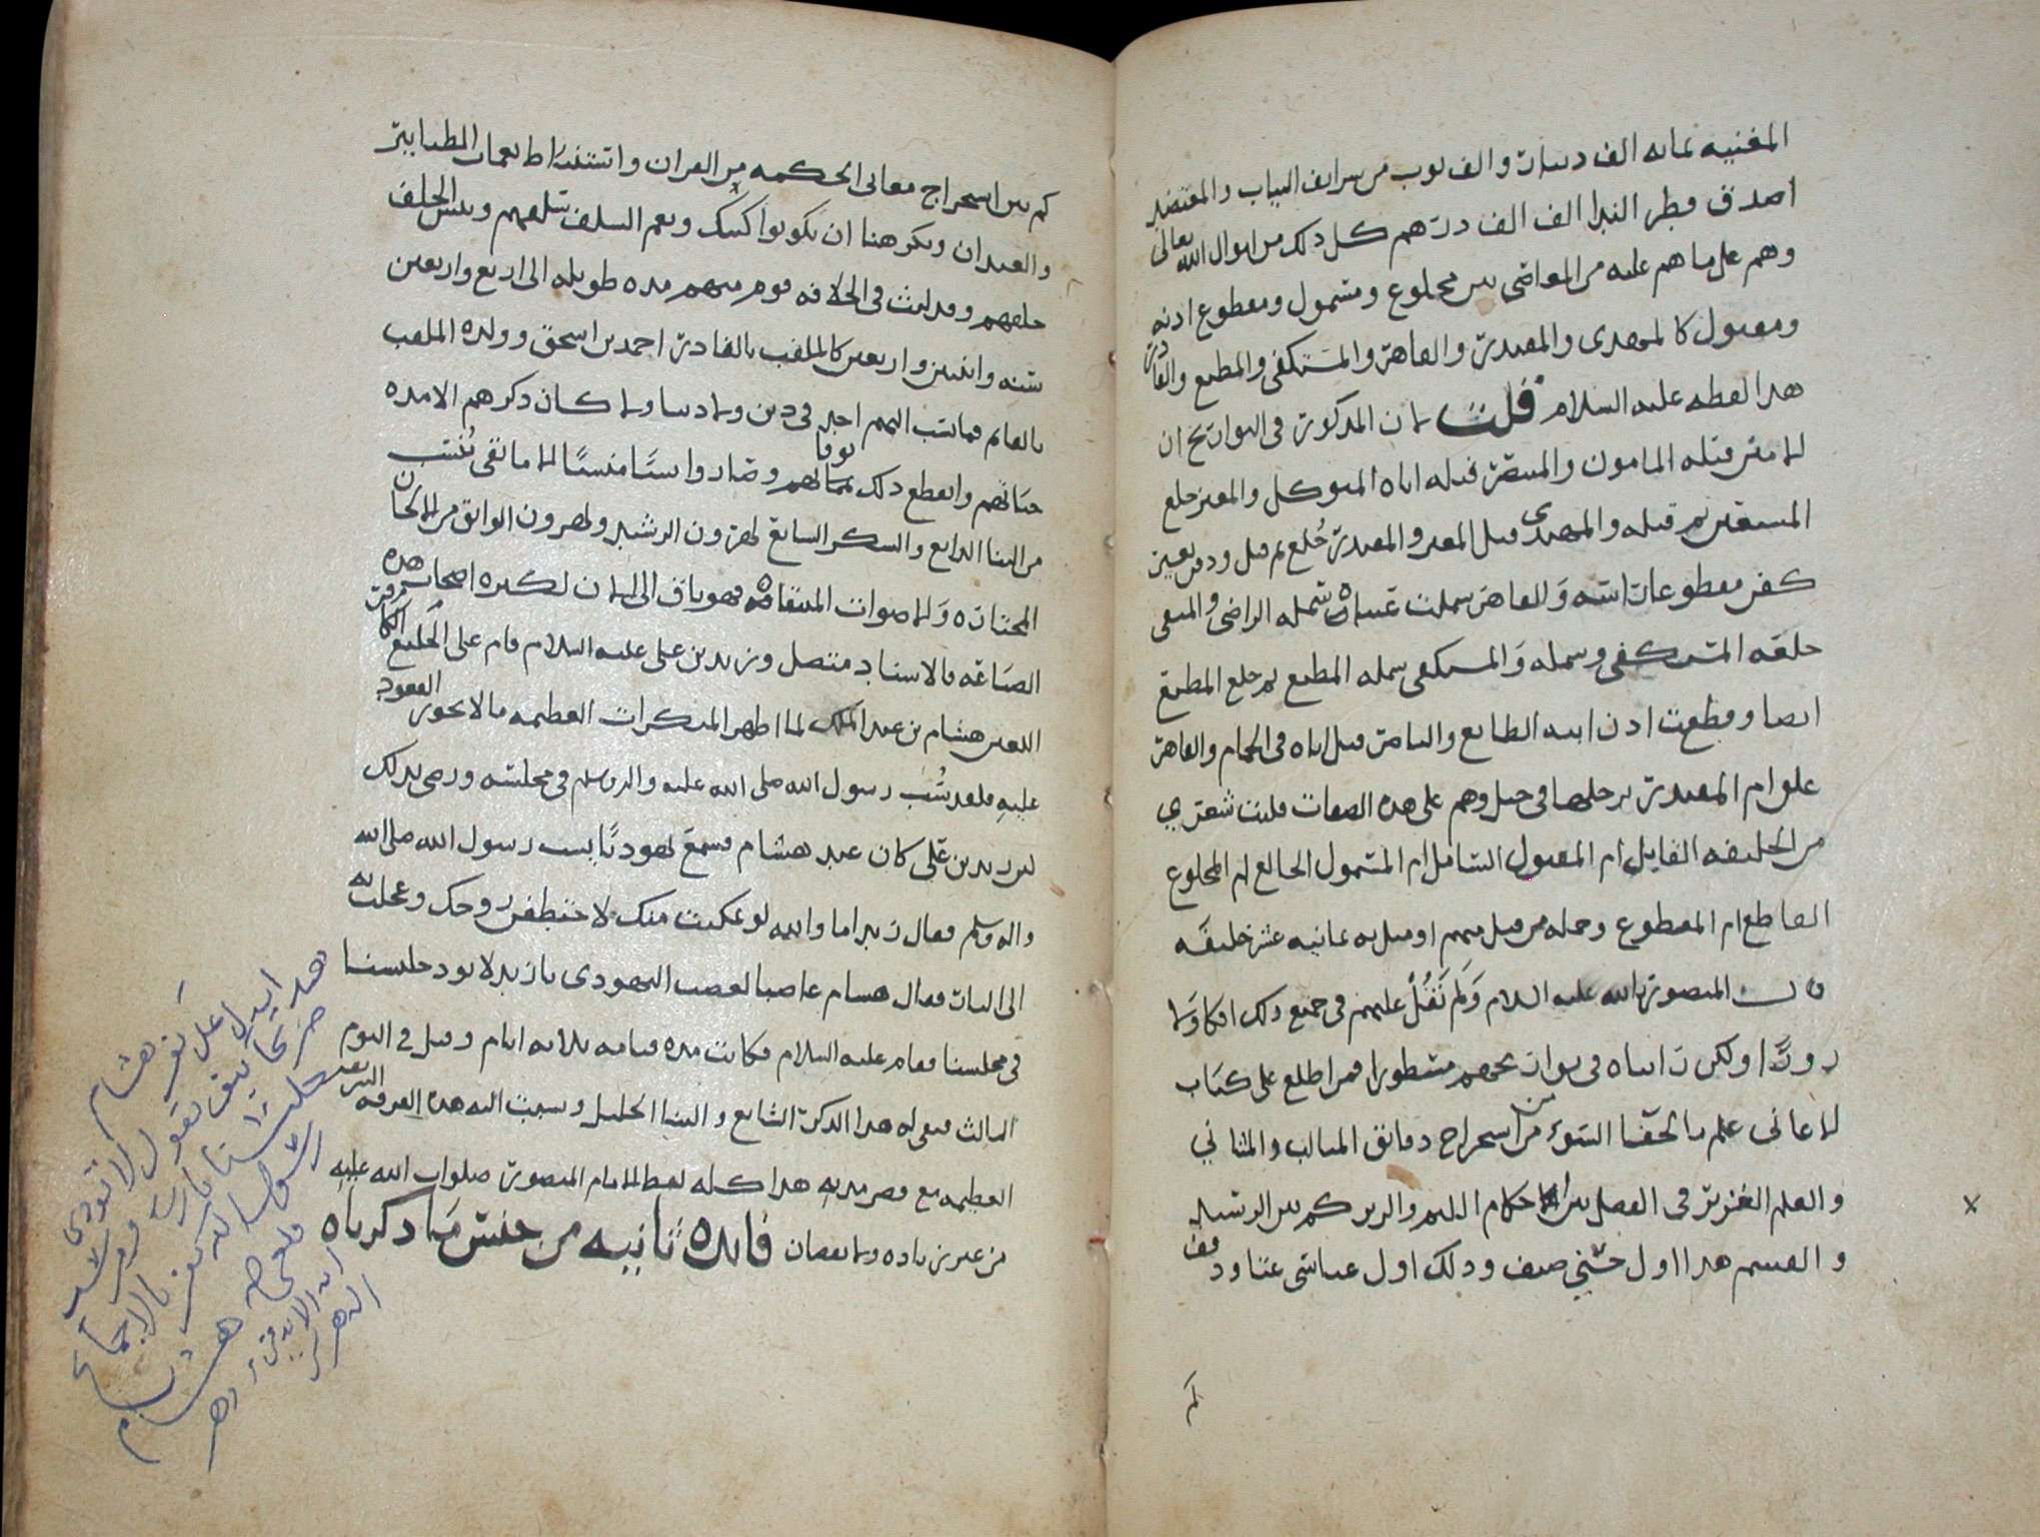 المغنيه بمائه الف دينار والف ثوب من سرايف الثياب والمقتضد
اصدق قطر الندا الف الف درهم كل ذلك من اموال الله تعالى
وهم على ما هم عليه من المعاصي بين مخلوع ومسمول ومقطوع اذنه
ومقتول كالمهدي والمقتدر والقاهر والمستكفي والمطيع والقادر
هذا لفظه عليه السلام قلت لان المذكور في التواريخ ان
الامين قتله المامون والمنتصر قتله اباه المتوكل والمعتز خلع
المستعين ثم قتله والمهتدي قتل المعتز والمقتدر خلع ثم قتل ودفن بغير
كفن مقطوعا راسه والقاهر سملت عيناه سمله الراضي والمتقي
خلعه المستكفي وسمله والمستكفي سمله المطيع ثم خلع المطيع
ايضا وقطعت اذن ابنه الطايع والناصر قتل اباه في الحمام والقاهر
علق ام المقتدر برجليها في حبل وهم على هذه الصفات فليت شعري
من الخليفه القاتل ام المقتول السامل ام المسمول الخالع ام المخلوع
القاطع ام المقطوع وجمله من قتل منهم او سمل به ثمانيه عشر خليفه
قال المنصور بالله عليه السلام ولم نقل عليهم في جميع ذلك افكا ولا
زورًا ولكن رايناه في تواريخهم مسطورا فمن اطلع على كتاب
الاغاني علم بالحقا السوء من استخراج دقائق المثالث والمثاني
والعلم الغزير في الفصل بين احكام البم والزير كم بين الرشيد
والقسم هذا اول حسني صنف وذلك اول عباسي غنا ودفف
كم
كم بين استخراج معاني الحكمه من القران واستنباط نغمات الطنابير
والعيدان ويكرهنا ان نكونوا كذلك ونعم السلف سلفهم وبئس الخلف
خلفهم وقد لبث في الخلافه قوم منهم مده طويله الى اربع واربعين
سنه واثنين واربعين كالملقب بالقادر احمد بن اسحق وولده الملقب
بالقايم فما نسب اليهم اجر في دين ولا دنيا ولا كان ذكرهم الا مده
حياتهم وانقطع ذلك بوفاتهم وصاروا نسيًا منسيًا الا ما بقي ينسب
من البنا الرابع والسكر السابغ لهرون الرشيد ولهرون الواثق من الالحان
المختاره والاصوات المنتقاه فهو باق الى الان لكثره اصحاب هذه
الصناعه بالاسناد متصل وزيد بن علي عليه السلام قام على الخليع الكافر
اللعين هشام بن عبد الملك لما اظهر المنكرات العظيمه ما لا يجوز القعود
عليه فلقد سب رسول الله صلى الله عليه واله وسلم في مجلسه ورضي بذلك
لان زيد بن علي كان عند هشام فسمع يهوديًا يسب رسول الله صلى الله
واله وسلم فقال زيد اما والله لو تمكنت منك لاختطفن روحك وعجلت به
الى النار فقال هشام غاضبا لغضب اليهودي يا زيد لا توذ جليسنا
في مجلسنا فقام عليه السلام فكانت مده قيامه ثلاثه ايام وقتل في اليوم
الثالث فبقي له هذا الذكر الشايع والثنا الجليل ونسبت اليه هذه الفرقه الشريفه
العظيمه مع قصر مدته هذا كله لفظ الامام المنصور صلوات الله عليه
من غير زياده ولا نقصان فايده ثانيه من جنس ما ذكرناه
هذا يدل على كفر هشام
صريحا كيف يقول لا توذي
جليسنا
رسول الله كفر بالاجماع
هشام